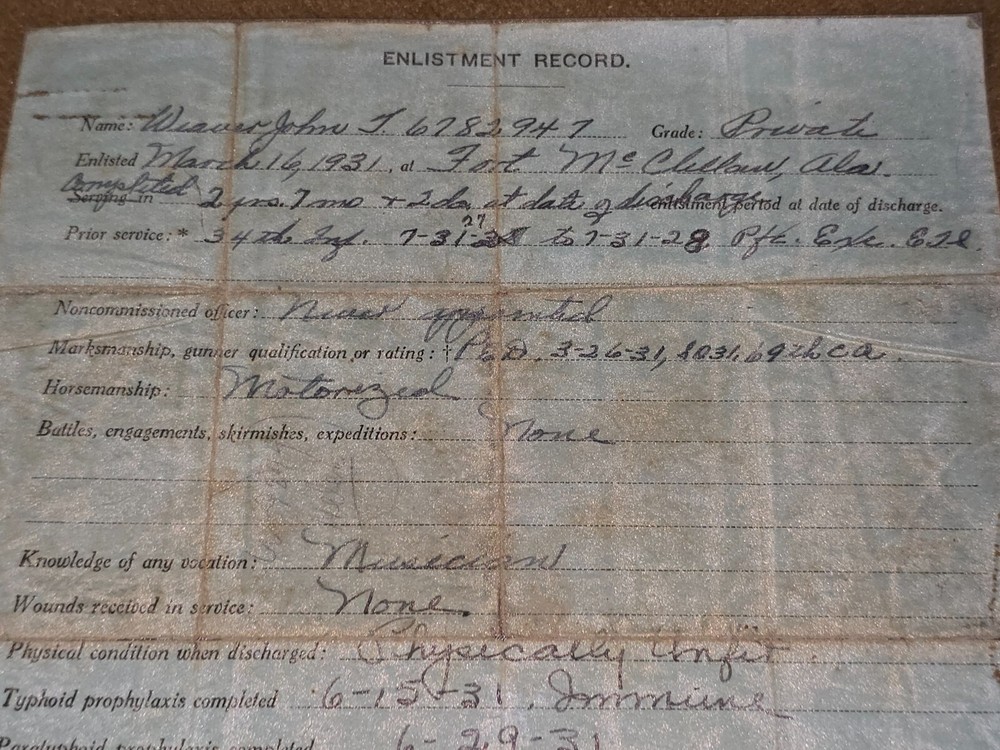 ENLISTMENT RECORD.
Name: Weaver John T. 6782947 Grade: Private
Enlisted March 16, 1931, at Fort McClellan, Ala.
Completed
Serving in 2 yrs. 7 mo + 2 da. at date of discharge enlistment period at date of discharge.
27
Prior service:* 34th Inf. 7-31-28 to 7-31-28 Pfc. Exc. E.T.S.
Noncommissioned officer: Never appointed
Marksmanship, gunner qualification or rating: † 3-26-31, 69th CA.
Horsemanship: Motorized
Battles, engagements, skirmishes, expeditions: None
Knowledge of any vocation: Musician
Wounds received in service: None.
Physical condition when discharged: Physically Unfit
Typhoid prophylaxis completed 6-15-31. Immune
Paratyphoid prophylaxis completed 6-29-31